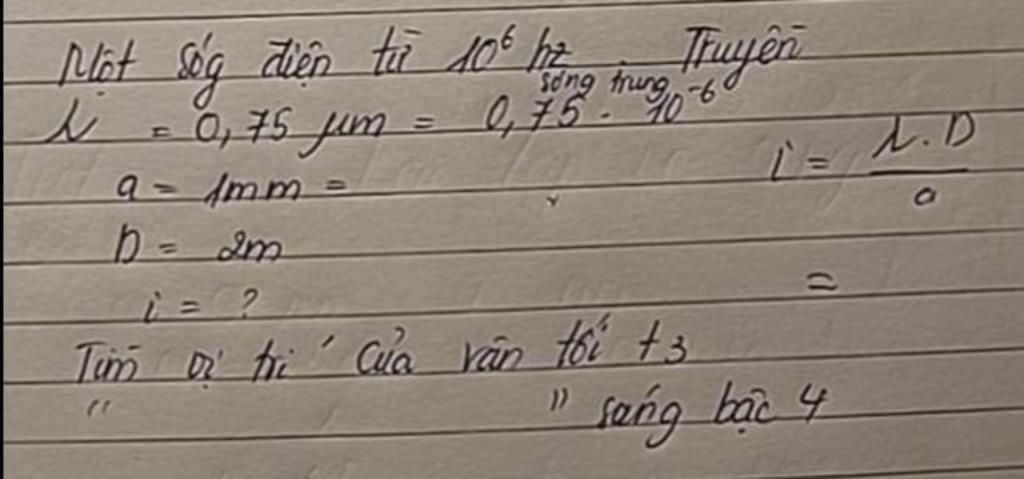 Một sóg điện từ 10⁶ hz. Truyền
sóng trung
λ = 0,75 µm = 0,75 . 10⁻⁶
a = 1mm =
i = λ.D / a
D = 2m
i = ?
=
Tìm vị trí của vân tối t3
" " sáng bậc 4